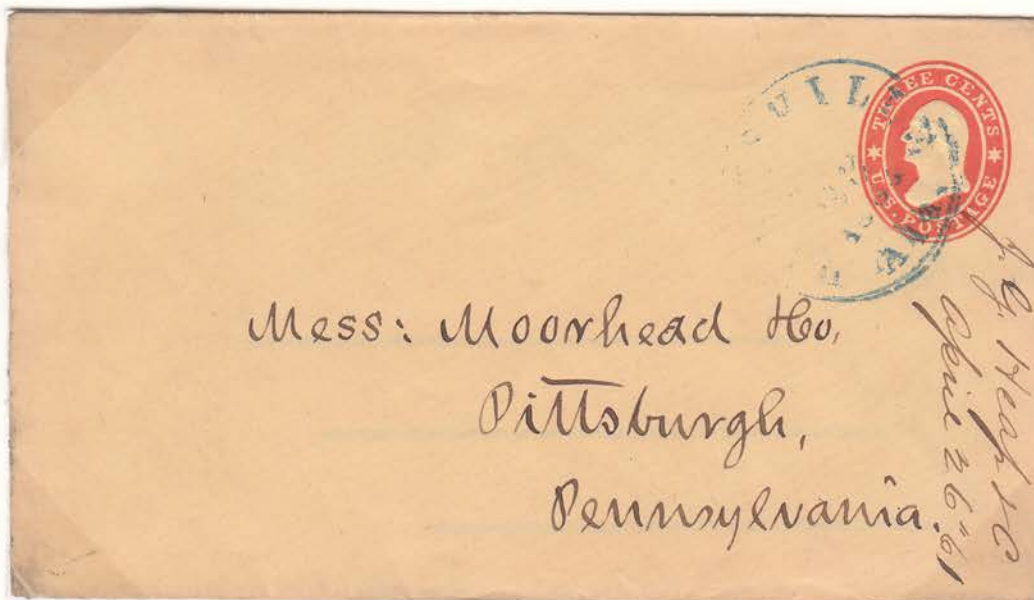 THREE CENTS
U.S. POSTAGE
Mess: Moorhead &Co,
Pittsburgh,
Pennsylvania.
April 26" 61